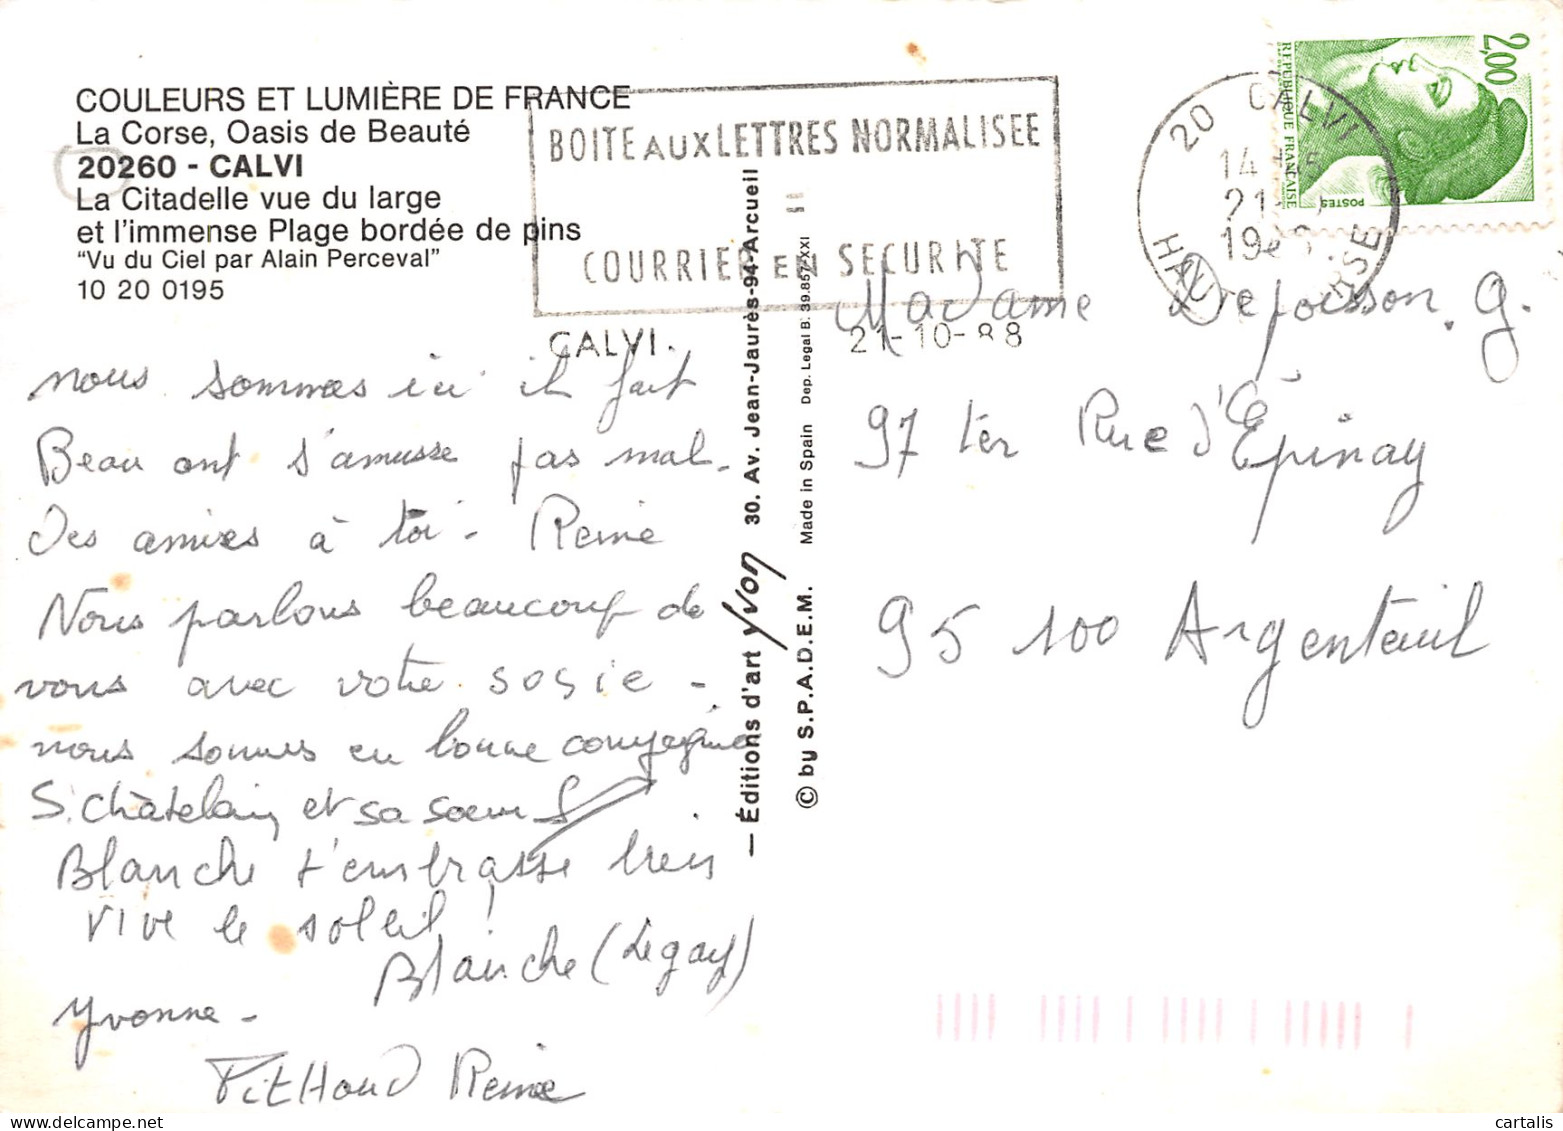 COULEURS ET LUMIÈRE DE FRANCE
La Corse, Oasis de Beauté
20260 - CALVI
La Citadelle vue du large
et l'immense Plage bordée de pins
"Vu du Ciel par Alain Perceval"
10 20 0195
BOITE AUX LETTRES NORMALISEE
=
COURRIER EN SECURITE
CALVI.
21-10-88
20 CALVI
14 H 5
21
19
HAUTE CORSE
2,00
REPUBLIQUE FRANÇAISE
POSTES
nous sommes ici il fait
Beau ont s'amusse pas mal.
Des amies à toi - Reine
Nous parlons beaucoup de
vous avec votre sosie -
nous sommes en bonne compagnie
S. Châtelain et sa soeur
Blanche t'embrasse bien
Vive le soleil !
Blanche (Legay)
Yvonne -
Reine
— Éditions d'art Yvon 30. Av. Jean-Jaurès-94-Arcueil
© by S.P.A.D.E.M. Made in Spain Dep. Legal B. 39.857-XXI
Madame G.
97 ter Rue d'Épinay
95 100 Argenteuil
cartalis